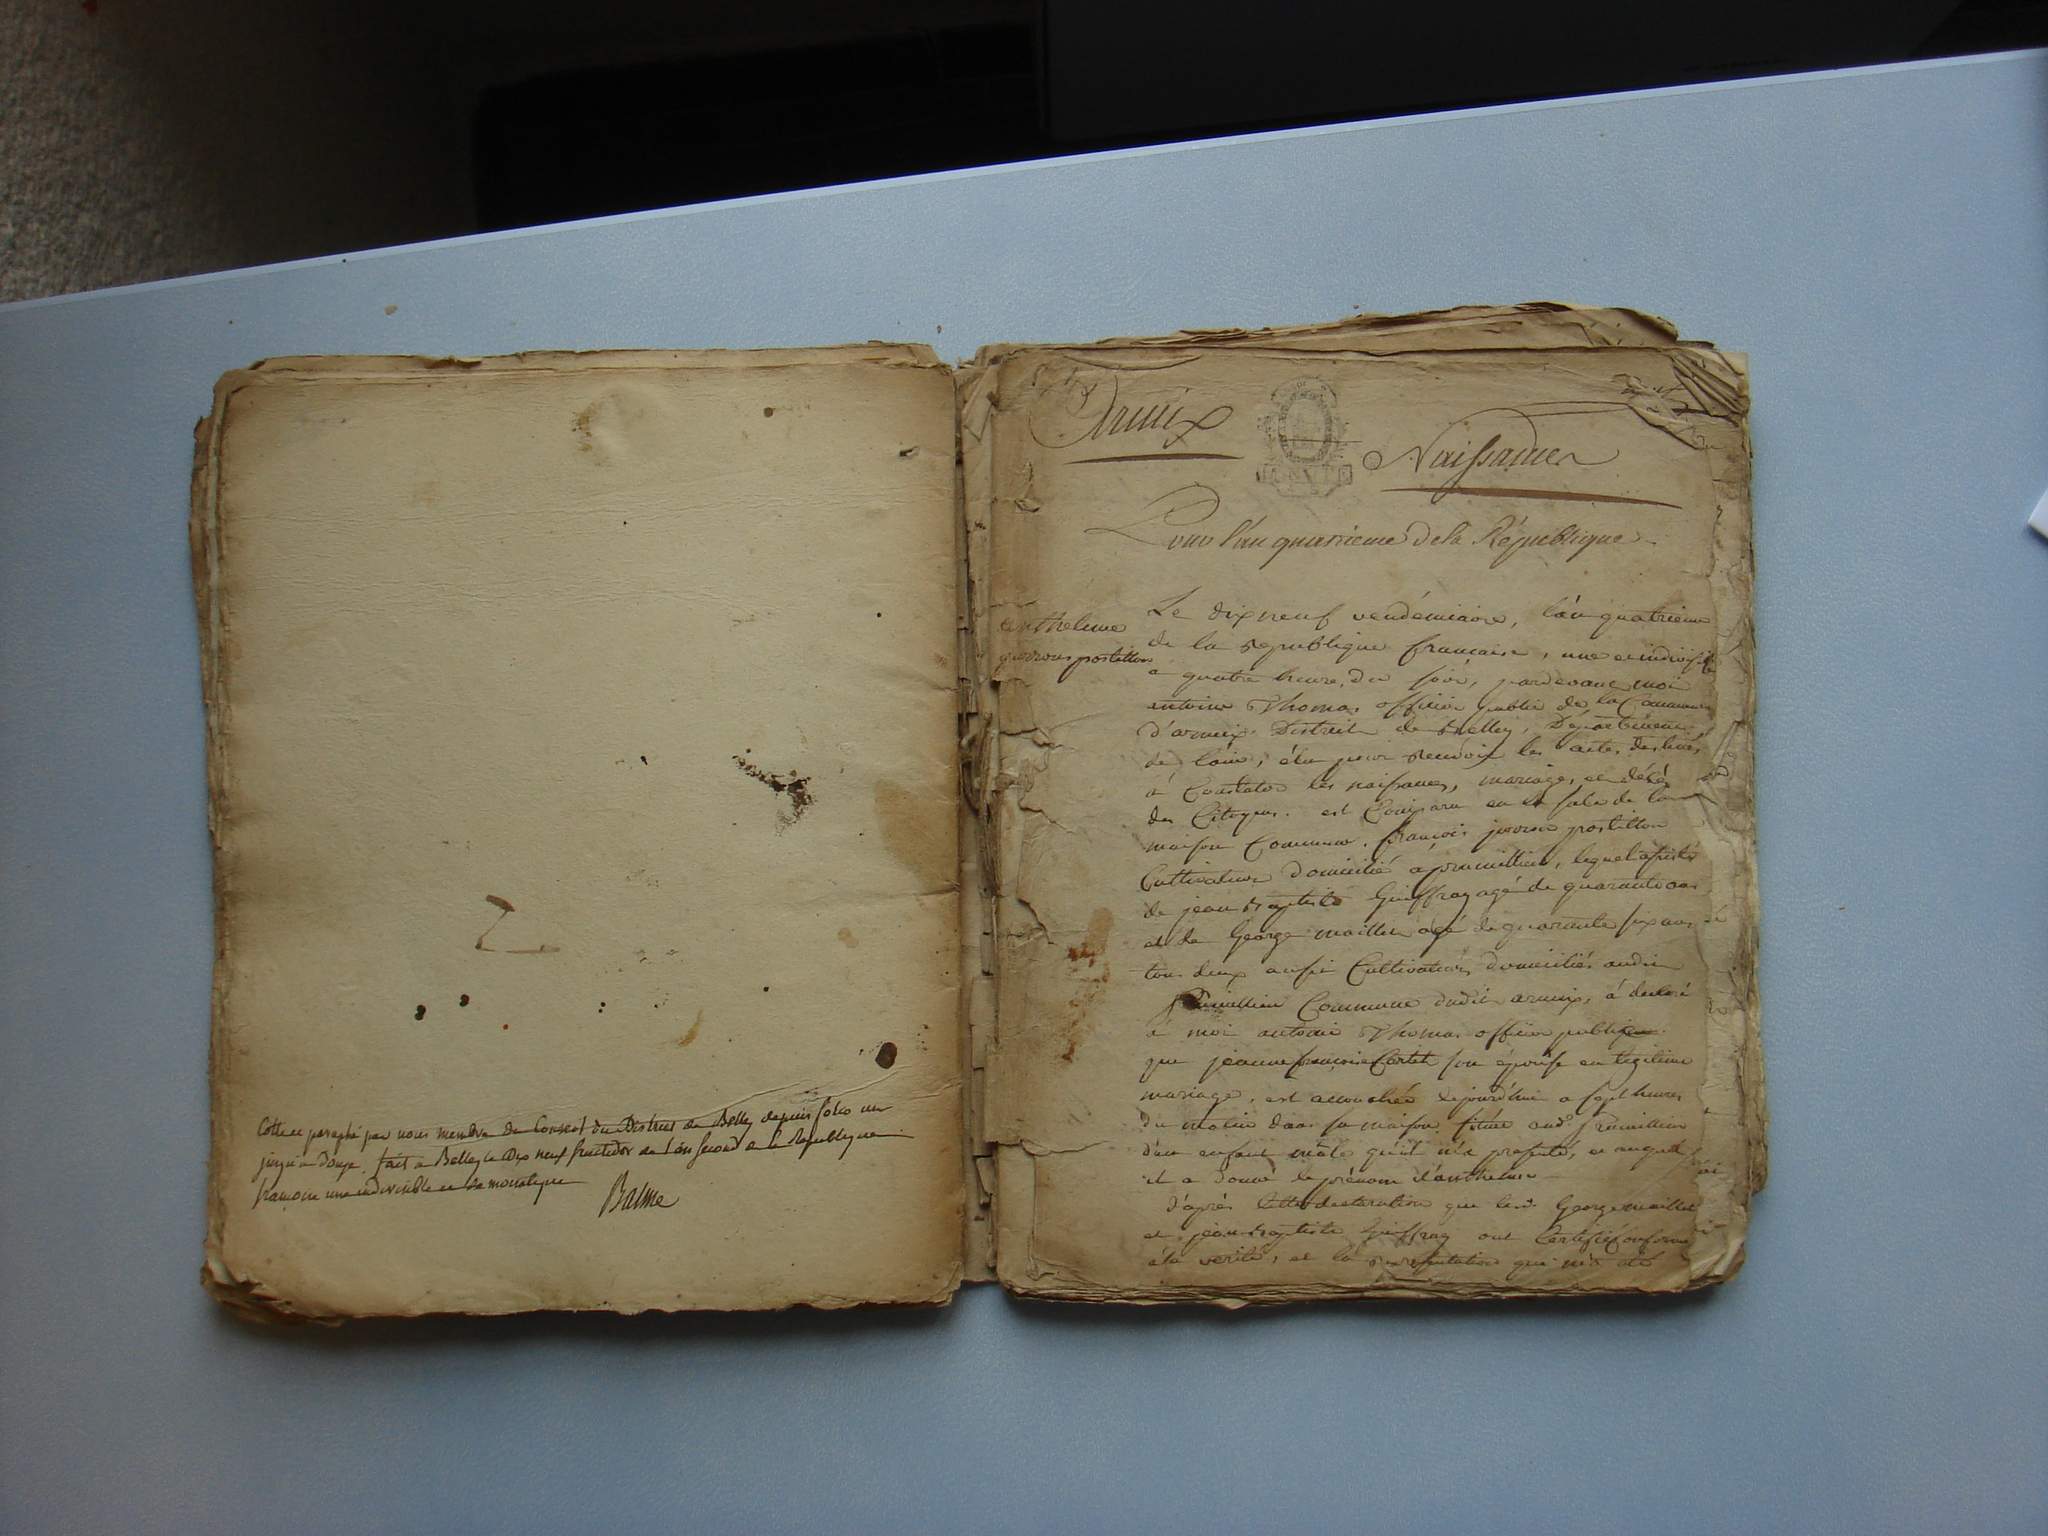 Cotté et paraphé par nous membre du Conseil du District de Belley depuis folio un
jusqu'à douze. fait à Belley le Dix neuf fructidor de l'an second de la Republique
françoise une indivisible et démocratique
Balme
Armix
Naissances
Pour l'an quatrieme de la République
anthelme
postillon
Le dix neuf vendémiaire, l'an quatrieme
de la republique francaise, une et indivisible
a quatre heure du soir, pardevant moi
antoine Thomas officier public de la Commune
d'armix District de Belley, Département
de l'ain, élu pour recevoir les actes destinés
à Constater les naissances, mariages, et décés
des Citoyens. est Comparu en la sale de la
maison Commune. françois postillon
Cultivateur domicilié a premillieu, lequel assisté
de jean Baptiste Guiffray agé de quarante ans
et de George maillet agé de quarante six ans
tous deux aussi Cultivateurs domiciliés audit
premillieu Commune dudit armix, à declaré
à moi antoine Thomas officier public
que jeanne françoise Cartet son épouse en legitime
mariage, est accouchée dejourd'hui a sept heures
du matin dans sa maison située aud. Premillieu
d'un enfant mâle qu'il m'a presenté, et auquel
il a donné le prénom d'anthelme
d'après cette declaration que les d. George maillet
et jean Baptiste Guiffray ont Certifié Conforme
à la verité, et la representation qui m'a été